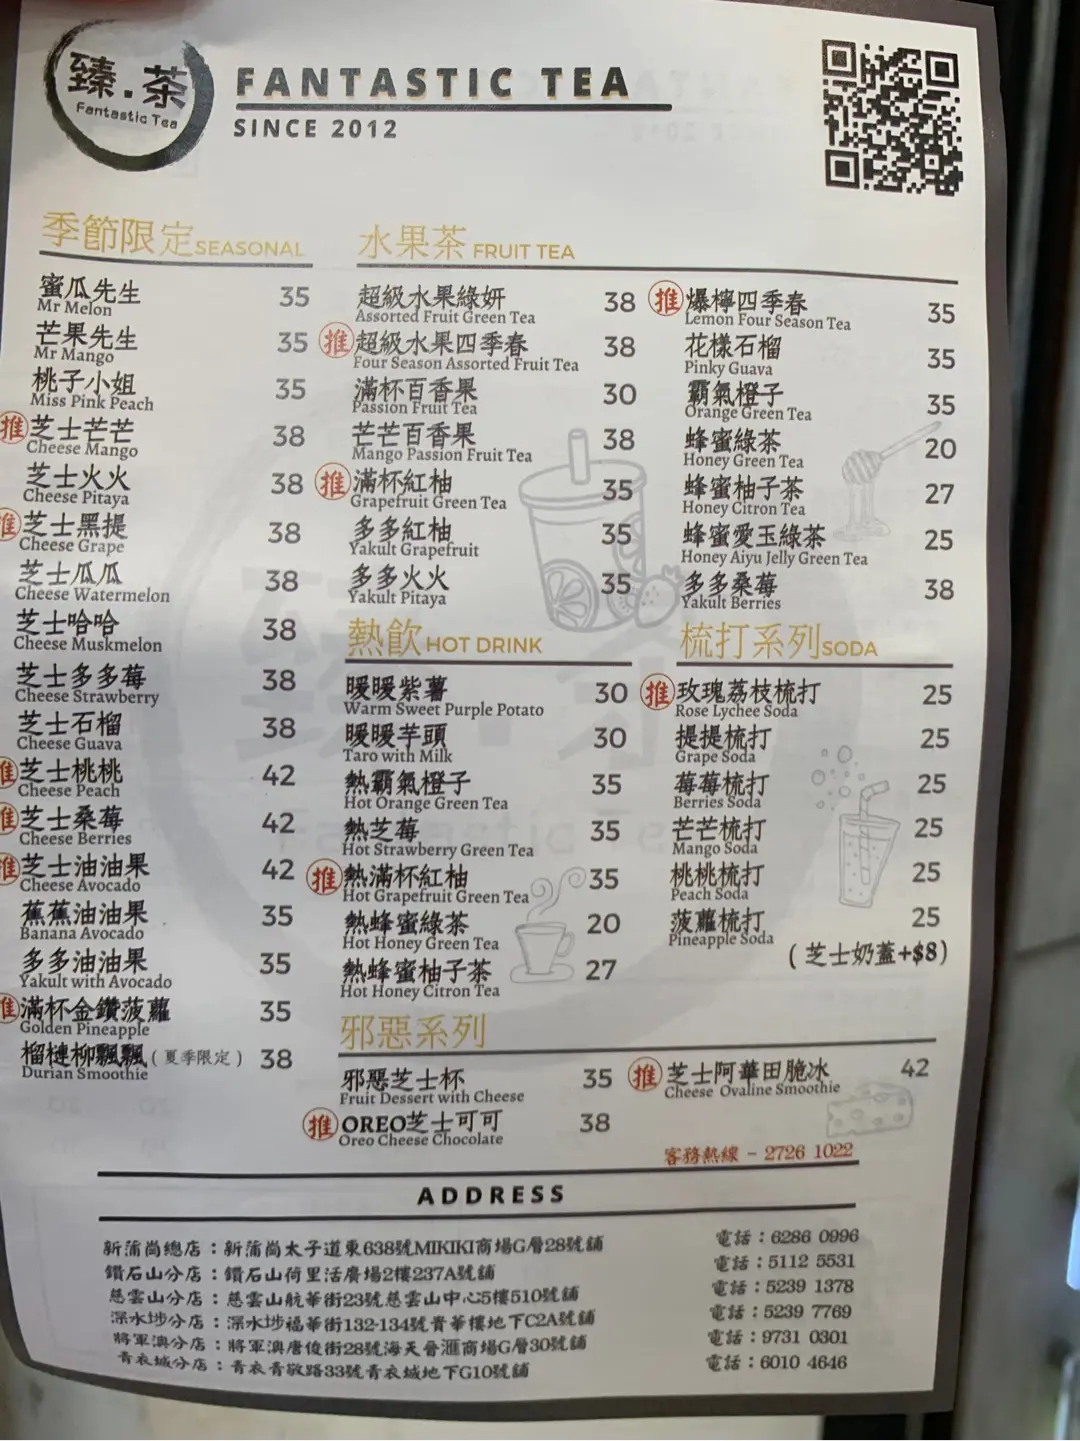 臻.茶
Fantastic Tea
FANTASTIC TEA
SINCE 2012
季節限定SEASONAL
蜜瓜先生 35
Mr Melon
芒果先生 35
Mr Mango
桃子小姐 35
Miss Pink Peach
推 芝士芒芒 38
Cheese Mango
芝士火火 38
Cheese Pitaya
推 芝士黑提 38
Cheese Grape
芝士瓜瓜 38
Cheese Watermelon
芝士哈哈 38
Cheese Muskmelon
芝士多多莓 38
Cheese Strawberry
芝士石榴 38
Cheese Guava
推 芝士桃桃 42
Cheese Peach
推 芝士桑莓 42
Cheese Berries
推 芝士油油果 42
Cheese Avocado
蕉蕉油油果 35
Banana Avocado
多多油油果 35
Yakult with Avocado
推 滿杯金鑽菠蘿 35
Golden Pineapple
榴槤柳飄飄 (夏季限定) 38
Durian Smoothie
水果茶 FRUIT TEA
超級水果綠妍 38
Assorted Fruit Green Tea
推 超級水果四季春 38
Four Season Assorted Fruit Tea
滿杯百香果 30
Passion Fruit Tea
芒芒百香果 38
Mango Passion Fruit Tea
推 滿杯紅柚 35
Grapefruit Green Tea
多多紅柚 35
Yakult Grapefruit
多多火火 35
Yakult Pitaya
推 爆檸四季春 35
Lemon Four Season Tea
花樣石榴 35
Pinky Guava
霸氣橙子 35
Orange Green Tea
蜂蜜綠茶 20
Honey Green Tea
蜂蜜柚子茶 27
Honey Citron Tea
蜂蜜愛玉綠茶 25
Honey Aiyu Jelly Green Tea
多多桑莓 38
Yakult Berries
熱飲 HOT DRINK
暖暖紫薯 30
Warm Sweet Purple Potato
暖暖芋頭 30
Taro with Milk
熱霸氣橙子 35
Hot Orange Green Tea
熱芝莓 35
Hot Strawberry Green Tea
推 熱滿杯紅柚 35
Hot Grapefruit Green Tea
熱蜂蜜綠茶 20
Hot Honey Green Tea
熱蜂蜜柚子茶 27
Hot Honey Citron Tea
梳打系列SODA
推 玫瑰荔枝梳打 25
Rose Lychee Soda
提提梳打 25
Grape Soda
莓莓梳打 25
Berries Soda
芒芒梳打 25
Mango Soda
桃桃梳打 25
Peach Soda
菠蘿梳打 25
Pineapple Soda
(芝士奶蓋+$8)
邪惡系列
邪惡芝士杯 35
Fruit Dessert with Cheese
推 OREO芝士可可 38
Oreo Cheese Chocolate
推 芝士阿華田脆冰 42
Cheese Ovaline Smoothie
客務熱線 - 2726 1022
ADDRESS
新蒲崗總店：新蒲崗太子道東638號MIKIKI商場G層28號舖 電話：6286 0996
鑽石山分店：鑽石山荷里活廣場2樓237A號舖 電話：5112 5531
慈雲山分店：慈雲山毓華街23號慈雲山中心5樓510號舖 電話：5239 1378
深水埗分店：深水埗福華街132-134號貴華樓地下C2A號舖 電話：5239 7769
將軍澳分店：將軍澳唐俊街28號海天晉滙商場G層30號舖 電話：9731 0301
青衣城分店：青衣青敬路33號青衣城地下G10號舖 電話：6010 4646